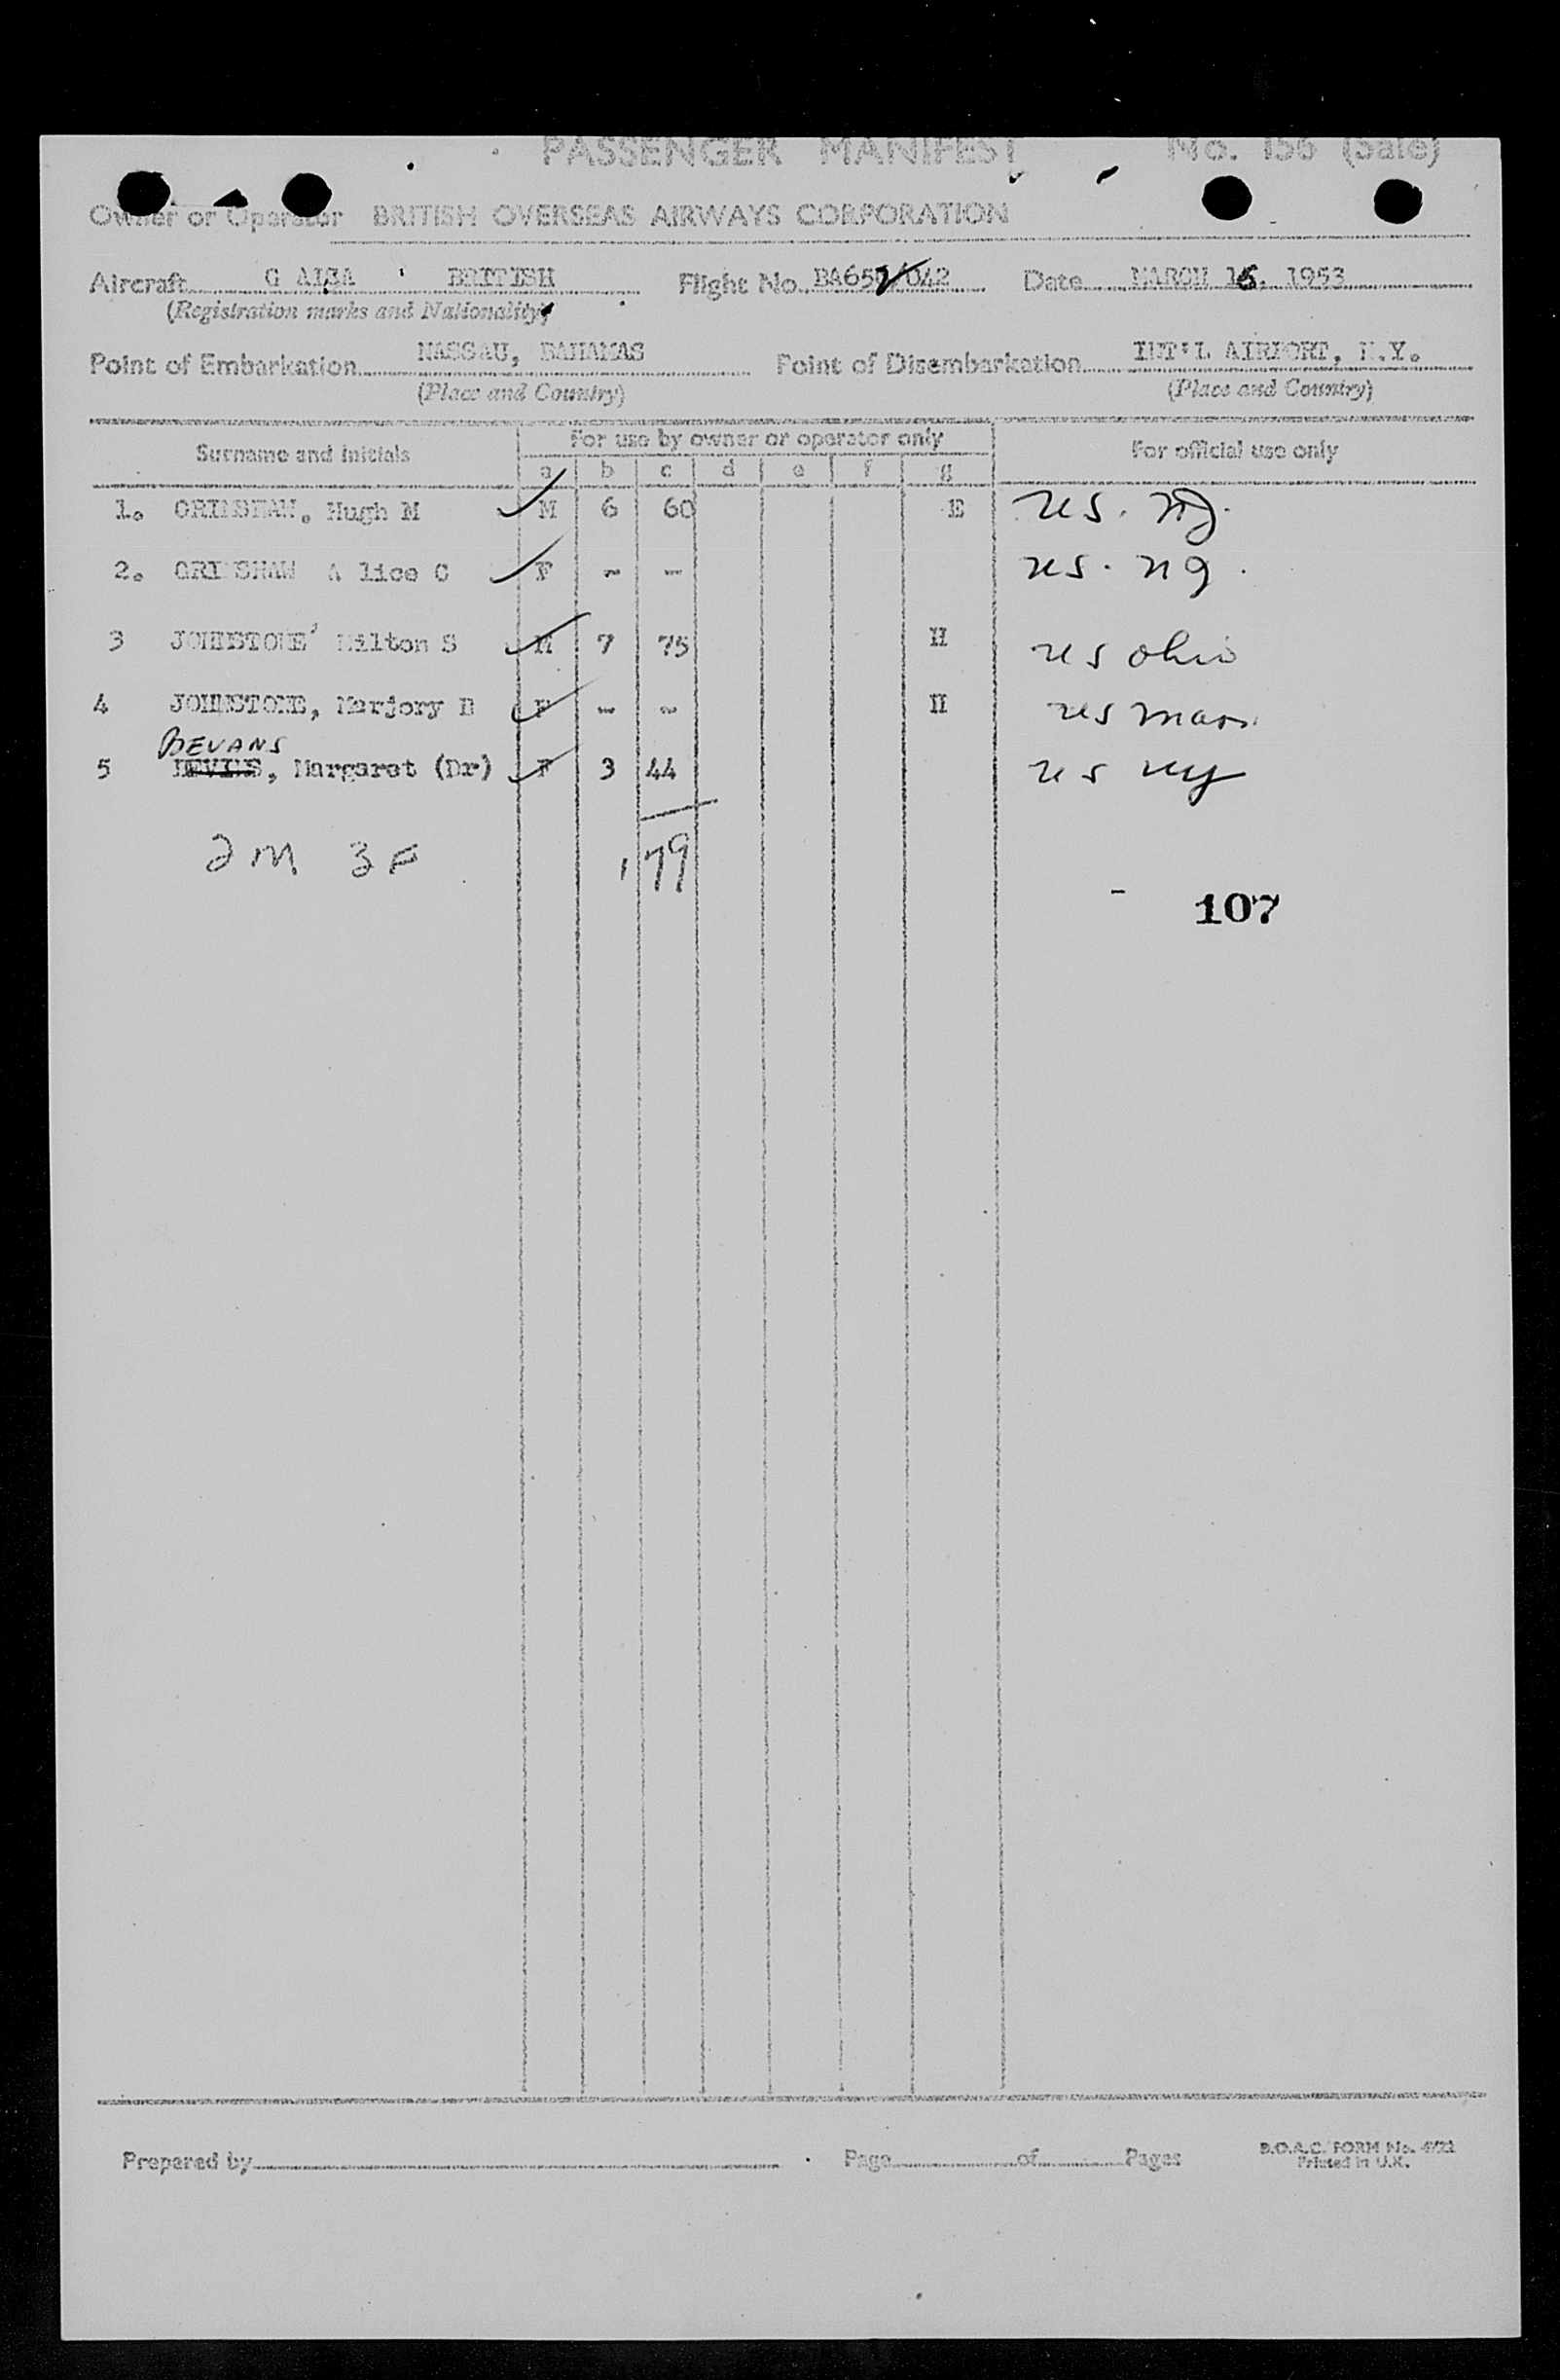 PASSENGER MANIFEST No. 156 (Sale)
Owner or Operator BRITISH OVERSEAS AIRWAYS CORPORATION
Aircraft BRITISH Flight No. BA652/042 Date MARCH 16, 1953
(Registration marks and Nationality)
Point of Embarkation NASSAU, BAHAMAS Point of Disembarkation INT'L AIRPORT, N.Y.
(Place and Country) (Place and Country)
Surname and initials For use by owner or operator only For official use only
a b c d e f g
1. GRIMSHAW. Hugh M M 6 60 E res.
2. GRIMSHAW A lice C F - - res.
3 JOHNSTONE' Milton S M 7 75 H res ohio
4 JOHNSTONE, Marjory D F - - H res mass
BEVANS
5 Margaret (Dr) F 3 44 res ny
2M 3F 179
107
Prepared by Page of Pages B.O.A.C. FORM No.
Printed in U.K.